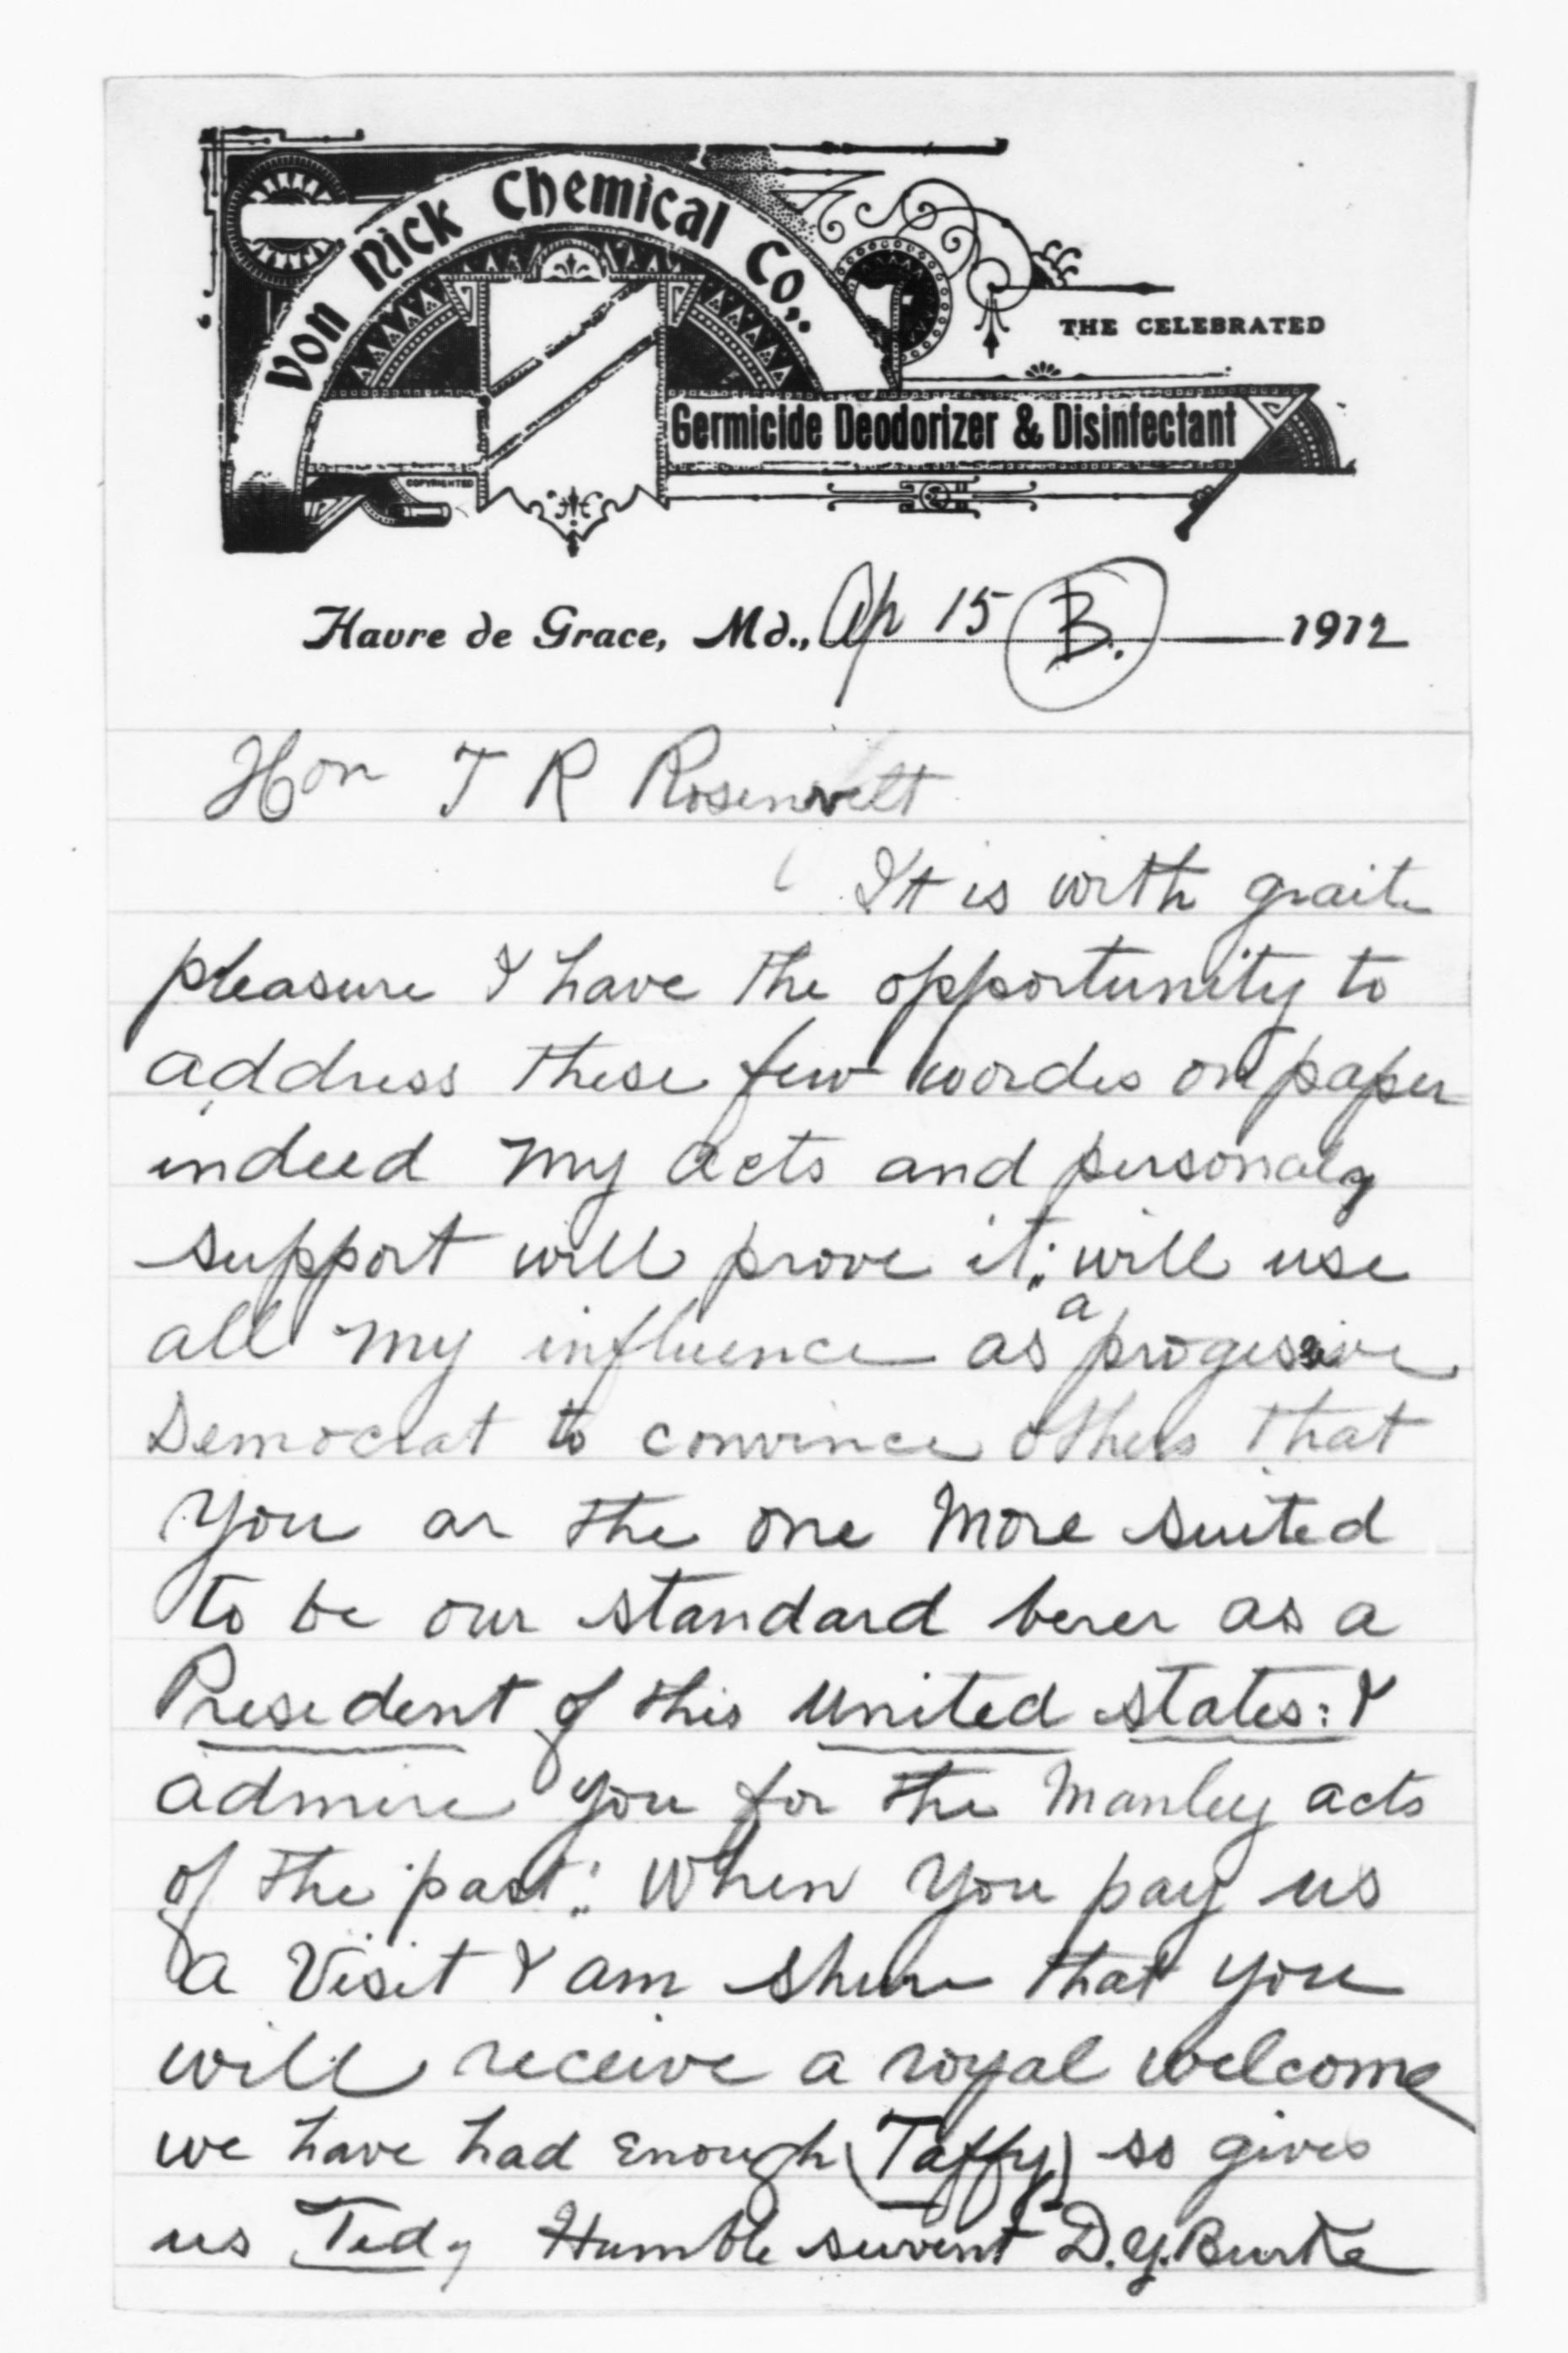 Von Nick Chemical Co.,
THE CELEBRATED
Germicide Deodorizer & Disinfectant
COPYRIGHTED
Havre de Grace, Md., Ap 15 B. 1912
Hon T R Rosenvelt
It is with graite
pleasure I have the opportunity to
address these few wordes on paper
indeed my acts and personaly
support will prove it: will use
all my influence as a progessive
Democrat to convince others that
You ar the one More suited
to be our standard berer as a
President of this United states: I
admire you for the Manley acts
of the past: When You pay us
a Visit I am shure that you
will receive a royal welcome
we have had Enough (Taffy) so gives
us Tedy Humble servent D.Y. Burke